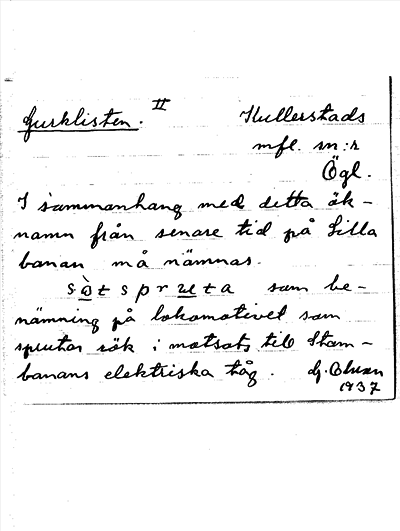 Gurklisten. II
Kullerstads
mfl. sn:r
Ögl.
I sammanhang med detta ök-
namn från senare tid på Lilla
banan må nämnas.
sòtspruta som be-
nämning på lokomotivet som
sprutar sök i motsats till Stam-
banans elektriska tåg.
1937